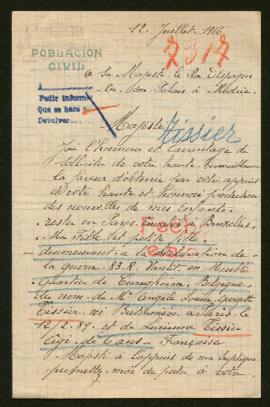 12 Juillet, 1916
7317
POBLACIÓN
CIVIL
A
Pedir Inform
Que se hace
Devolver
A Sa Majesté le Roi d'Espagne
En Son Palais à Madrid
Majesté
Tissier
J'ai l'Honneur et l'avantage de
solliciter de votre haute Bienveillance
la faveur d'obtenir par votre
votre haute et protection
des nouvelles de mes Enfants
restés en Pays à Bruxelles
Ma Fille et petite fille
demeurant à la déclaration de
la guerre 83 R. en Meublé
quartier de Belgique
du nom de Mme Angèle Louise Georgette
Tissier née à le
12/2. 89. et de Lucienne Tissier
âgé de 6 ans - Française
Majesté à l'appui de ma Supplique
permettez-moi de a votre